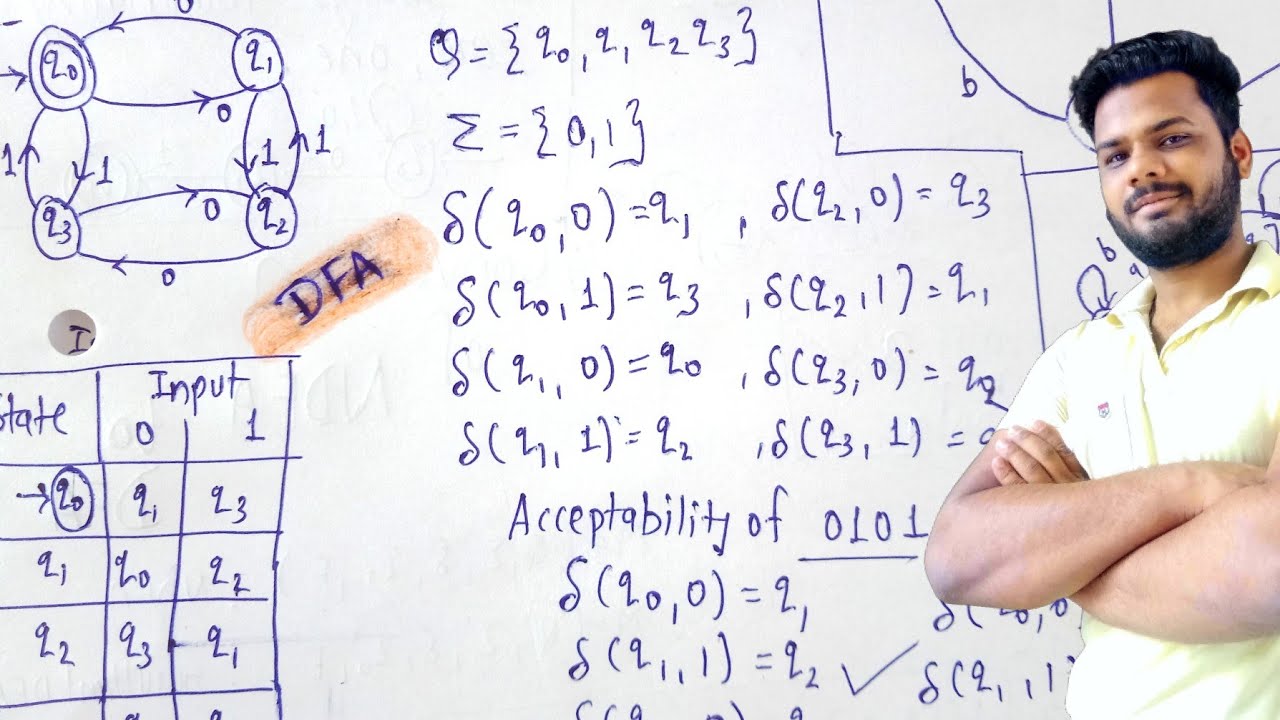 0
→ q0
q1
0
1
1
1
1
q3
0
q2
0
DFA
I
State Input
0 1
→ q0 q1 q3
q1 q0 q2
q2 q3 q1
Q = { q0, q, q2 q3 }
Σ = { 0, 1 }
δ( q0, 0) = q1 , δ(q2, 0) = q3
δ( q0, 1) = q3 , δ(q2, 1) = q1
δ( q1, 0) = q0 , δ(q3, 0) = q2
δ( q1, 1) = q2 , δ(q3, 1) =
Acceptability of 0101
δ(q0, 0) = q1
δ(q1, 1) = q2 ✓
δ(q0, 0
δ(q1, 1)
b
b